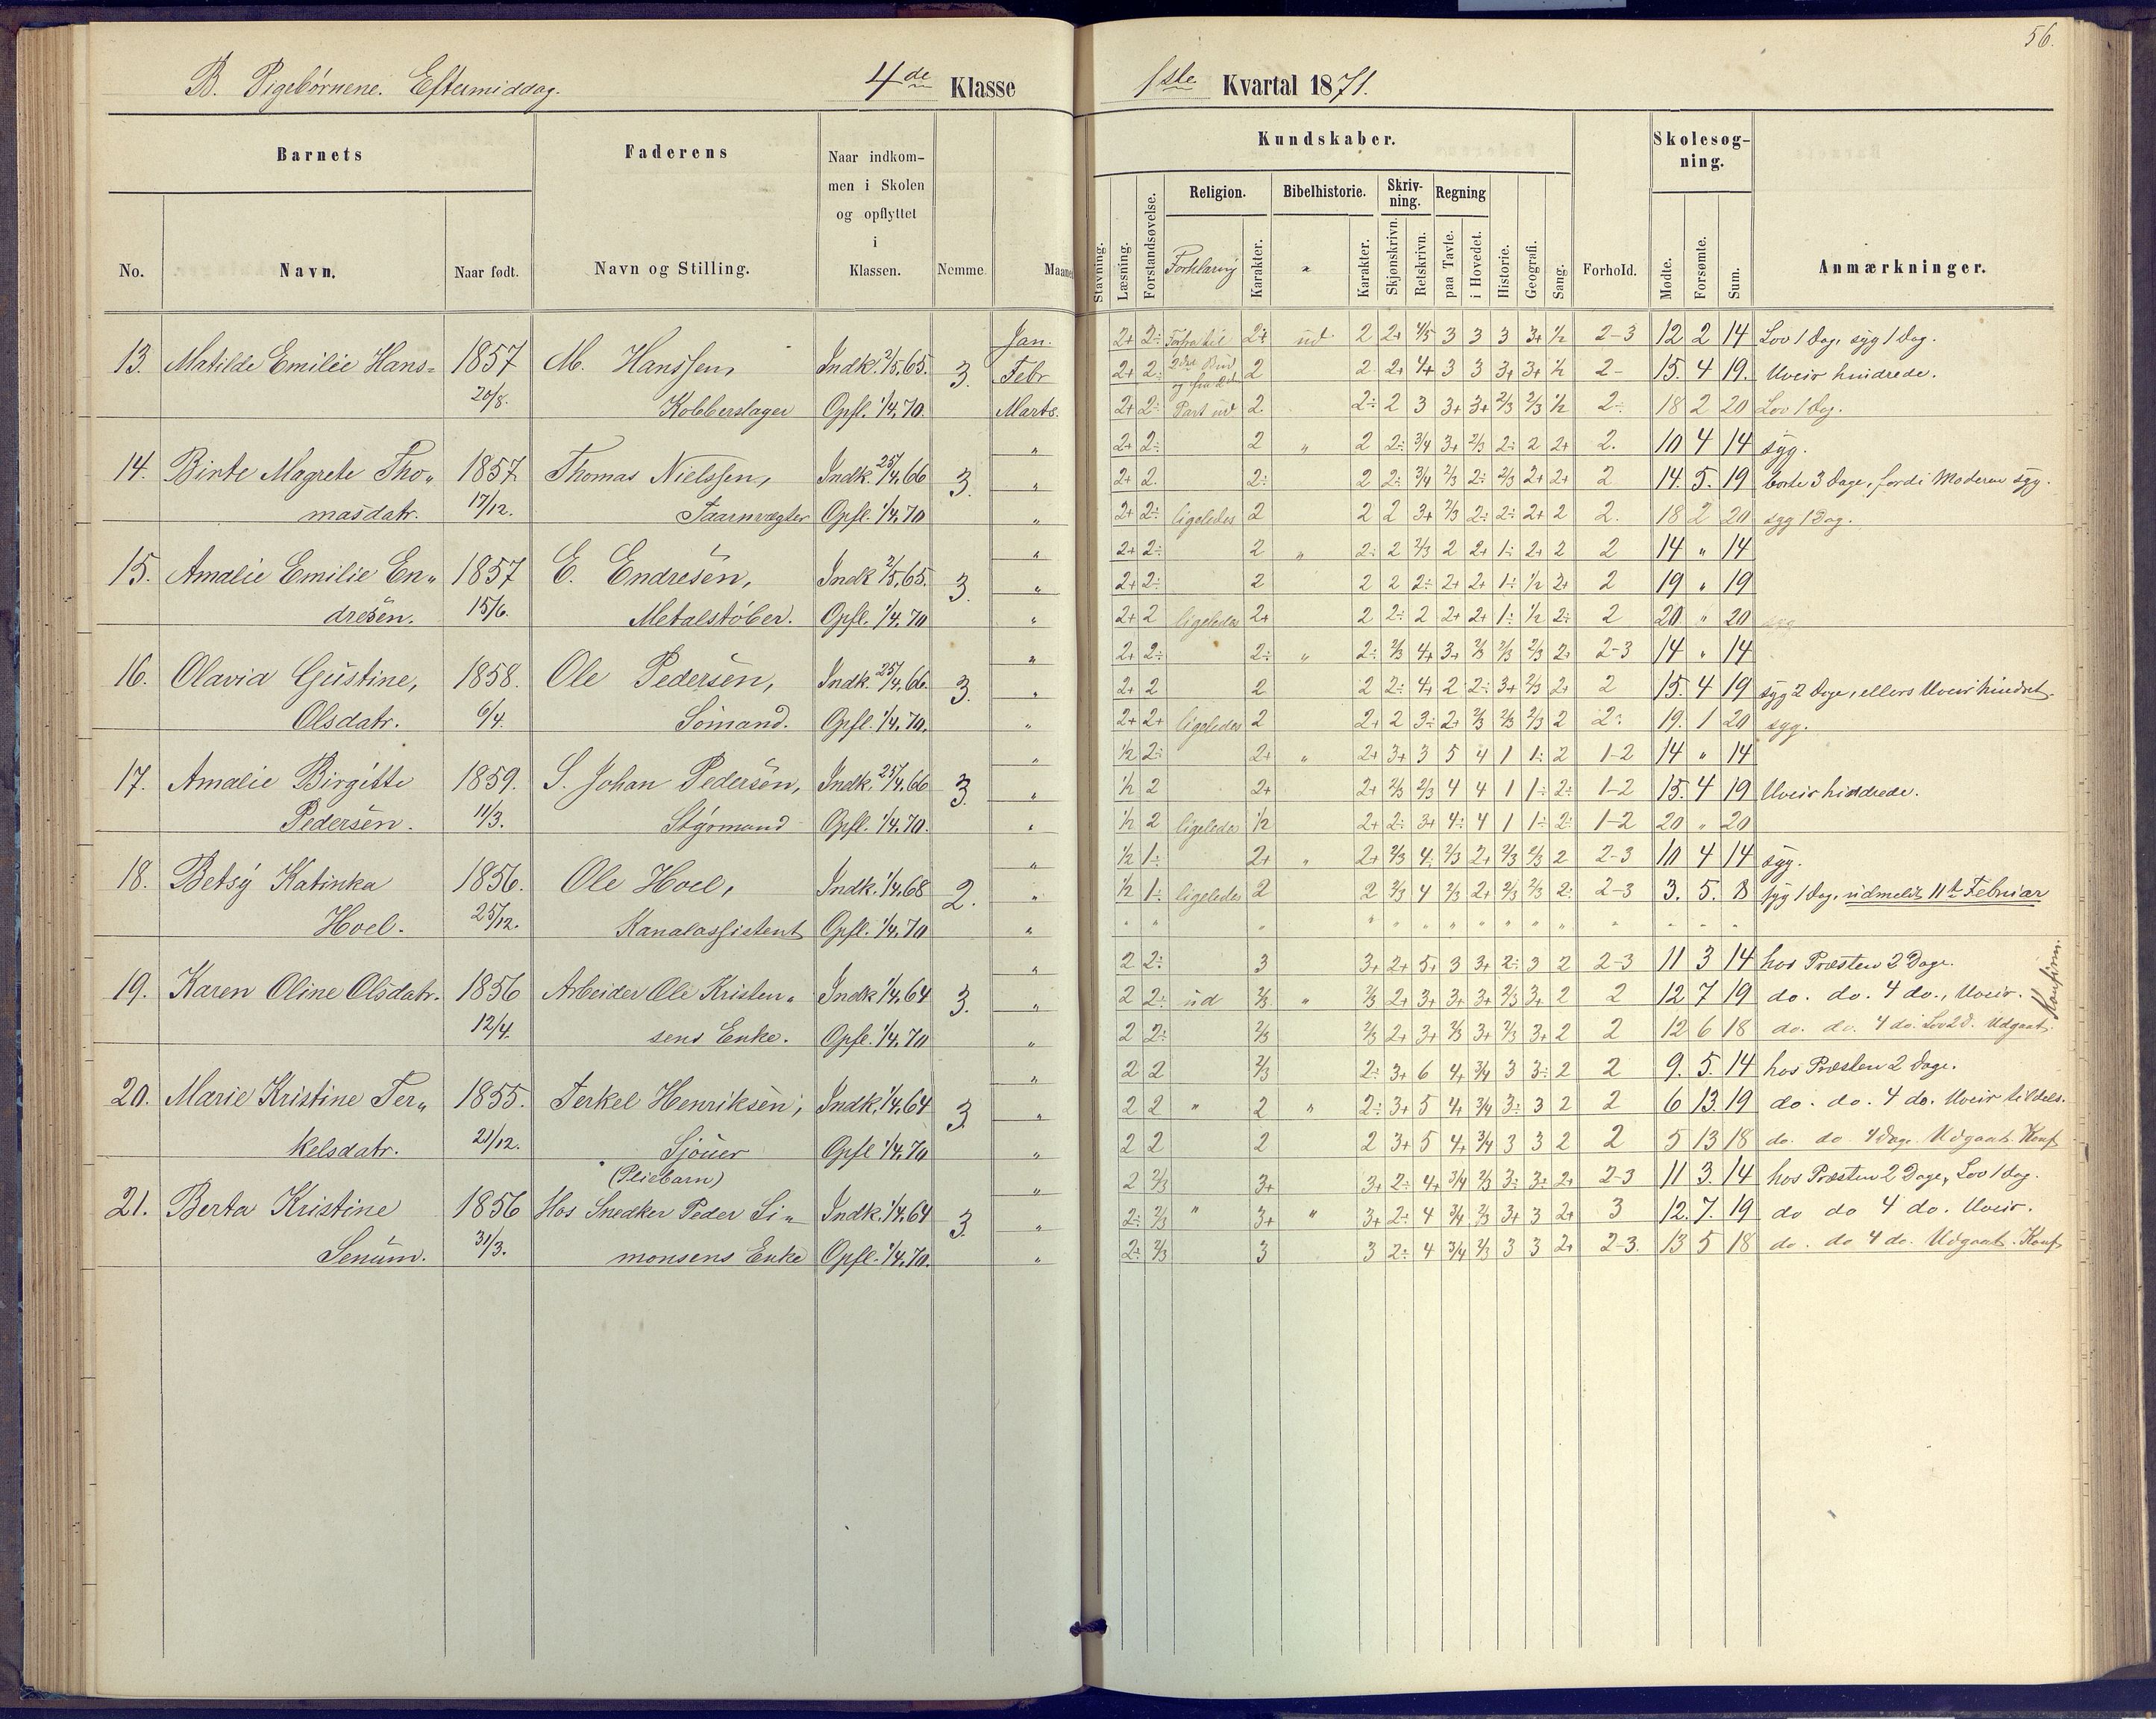 56.
B. Pigebørnene. Eftermiddag. 4de Klasse 1ste Kvartal 1871.
Barnets Faderens Naar indkommen i Skolen og opflyttet i Klassen. Nemme Maaned Kundskaber. Forhold. Skolesøgning. Anmærkninger.
No. Navn. Naar født. Navn og Stilling. Stavning. Læsning. Forstandsøvelse. Religion. Forklaring Karakter. Bibelhistorie. " Karakter. Skrivning. Skjønskrivn. Retskrivn. Regning paa Tavle. i Hovedet. Historie. Geografi. Sang. Mødte. Forsømte. Sum.
Jan. 2+ 2÷ Forfra til 2+ ud 2 2+ 4/5 3 3 3 3+ ½ 2-3 12 2 14 Lov 1 Dag, syg 1 Dag.
13. Matilde Emilie Hans= 1857 M. Hanssen, Indk. 2/5,65. 3. Febr 2+ 2÷ 2det Bud 2 2 2+ 4+ 3 3 3+ 3+ ½ 2- 15. 4 19. Uveir hindrede.
20/8. Kobberslager Opfl. 1/4,70. Marts. 2+ 2÷ Part ud 2 2÷ 2 3 3+ 3+ 2/3 2/3 ½ 2÷ 18 2 20 Lov 1 Dag.
" 2+ 2÷ 2 " 2 2÷ 3/4 3+ 2/3 2÷ 2 2+ 2. 10 4 14 syg.
14. Birte Magrete Tho„ 1857 Thomas Nielssen, Indk. 25/4,66 3. " 2+ 2. 2÷ 2 2÷ 3/4 2/3 2÷ 2/3 2+ 2+ 2 14. 5. 19 borte 3 Dage, fordi Moderen syg.
masdatr. 17/12. Taarnvægter Opfl. 1/4,70 " 2+ 2÷ ligeledes 2 2 2 3+ 2/3 2÷ 2÷ 2+ 2 2. 18 2 20 syg 1 Dag.
" 2+ 2÷ 2 " 2÷ 2 2/3 2 2+ 1÷ 2+ 2 2 14 " 14
15. Amalie Emilie En„ 1857 E. Endresen, Indk 2/5,65. 3. " 2+ 2÷ 2 2 2 2÷ 2+ 2+ 1÷ ½ 2+ 2 19 " 19
dresen. 15/6. Metalstøber. Opfl. 1/4,70 " 2+ 2 ligeledes 2+ 2 2÷ 2 2+ 2+ 1÷ ½ 2÷ 2 20 " 20
" 2+ 2÷ 2÷ " 2÷ 2/3 4+ 3+ 2/3 2/3 2/3 2+ 2-3 14 " 14
16. Olavia Gustine, 1858. Ole Pedersen, Indk. 25/4,66. 3. " 2+ 2 2 2 2÷ 4+ 2 2÷ 3+ 2/3 2+ 2 15. 4 19 syg 2 Dage, ellers Uveir hindret.
Olsdatr. 6/4. Sömand. Opfl. 1/4,70. " 2+ 2+ ligeledes 2 2+ 2 3÷ 2+ 2/3 2/3 2/3 2 2÷ 19. 1 20 syg.
" ½ 2÷ 2+ " 2+ 3+ 3 5 4 1 1÷ 2 1-2 14 " 14
17. Amalie Birgitte 1859. S. Johan Pedersen, Indk. 25/4,66 3. " ½ 2 2+ 2+ 2/3 2/3 4 4 1 1÷ 2÷ 1-2 15. 4 19 Uveir hindrede.
Pedersen. 11/3. Stýrmand Opfl. 1/4,70. " ½ 2 ligeledes ½ 2+ 2÷ 3+ 4÷ 4 1 1÷ 2÷ 1-2 20 " 20
" ½ 1÷ 2+ " 2+ 2/3 4÷ 2/3 2+ 2/3 2/3 2 2-3 10 4 14 syg.
18. Betsý Katinka 1856. Ole Hoel, Indk. 1/4,68 2. " ½ 1÷ ligeledes 2 2 2/3 4 2/3 2+ 2/3 2/3 2÷ 2-3 3. 5. 8 syg 1 Dag, udmeldt 11te Februar
Hoel. 25/12. Kanalassistent Opfl. 1/4,70 " " " " " " " " " " " " " " " "
" 2 2÷ 3 3+ 2+ 5+ 3 3+ 2÷ 3 2 2-3 11 3 14 hos Præsten 2 Dage.
19. Karen Oline Olsdatr. 1856 Arbeider Ole Kristen„ Indk 1/4,64 3. " 2 2÷ ud 2/3 " 2/3 2+ 3+ 3+ 3+ 2/3 3+ 2 2 12 7 19 do. do. 4 do., Uveir. Konfirm.
12/4. sens Enke. Opfl. 1/4,70 " 2 2÷ 2/3 2/3 2+ 3+ 2/3 3+ 2/3 3+ 2 2 12 6 18 do. do. 4 do. Lov 2 d. Udgaat.
" 2 2 2/3 2÷ 3+ 6 4+ 3/4 3 3÷ 2 2 9. 5. 14 hos Præsten 2 Dage.
20. Marie Kristine Ter„ 1855. Terkel Henriksen, Indk. 1/4,64 3. " 2 2 " 2 " 2÷ 3+ 5 4+ 3/4 3÷ 3 2 2 6 13. 19 do. do. 4 do. Uveir tildels.
kelsdatr. 21/12. Sjouer Opfl 1/4,70 " 2 2 2 2 3+ 5 4+ 3/4 3 3 2 2 5 13 18 do. do 4 Dage. Udgaat. Konf
(Pliebarn) " 2 2/3 3+ 3+ 2÷ 4+ 3/4 2/3 3÷ 3÷ 2+ 2-3 11 3. 14 hos Præsten 2 Dage, Lov 1 dag.
21. Berta Kristine 1856 Hos Snedker Peder Si„ Indk. 1/4,64 3. " 2÷ 2/3 " 3+ " 3+ 2÷ 4 3/4 2/3 3+ 3 2+ 3 12. 7. 19 do do 4 do. Uveir.
Senum. 31/3. monsens Enke Opfl. 1/4,70. " 2÷ 2/3 3 3 2÷ 4 3/4 2/3 3 3 2+ 2-3. 13 5 18 do. do 4 do. Udgaat. Konf